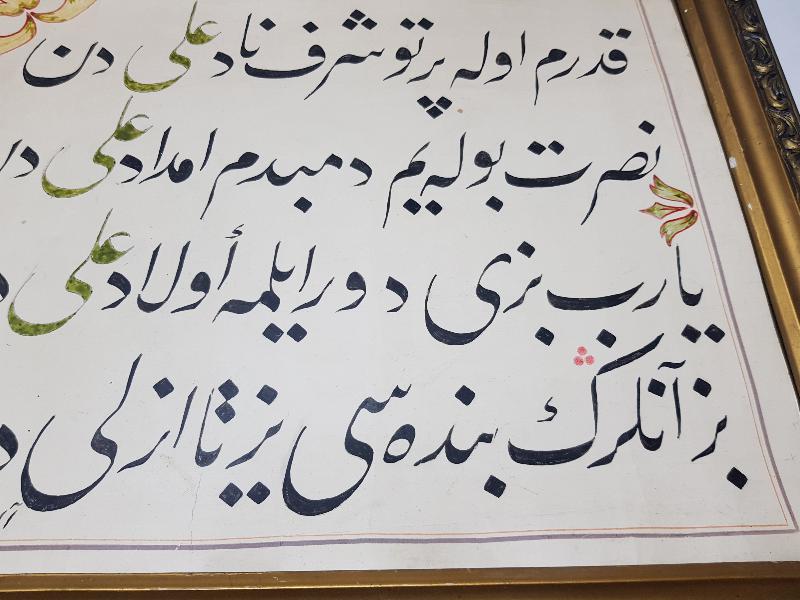 قدرم اوله پرتو شرف ناد علی دن
نصرت بوله یم دمبدم امداد علی
یارب بزی دور ایلمه أولاد علی
بز آنلرڭ بنده سی یز تا ازلی